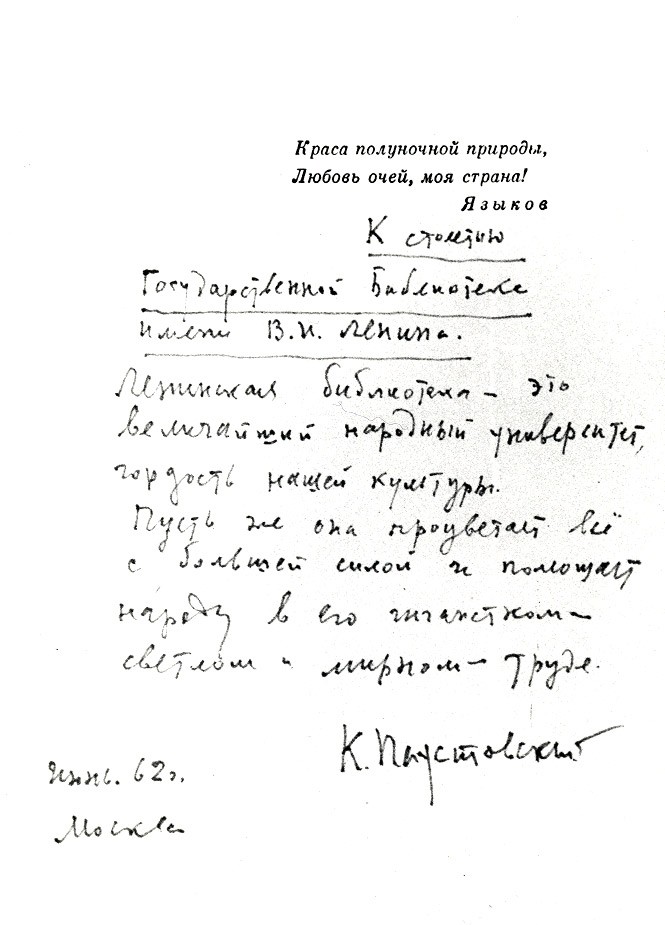 Краса полуночной природы,
Любовь очей, моя страна!
Языков
К столетию
Государственной Библиотеке
имени В.И. Ленина.
Ленинская библиотека – это
величайший народный университет,
гордость нашей культуры.
Пусть же она процветает всё
с большей силой и помогает
народу в его гигантском –
светлом и мирном – труде.
К. Паустовский
июнь. 62 г.
Москва